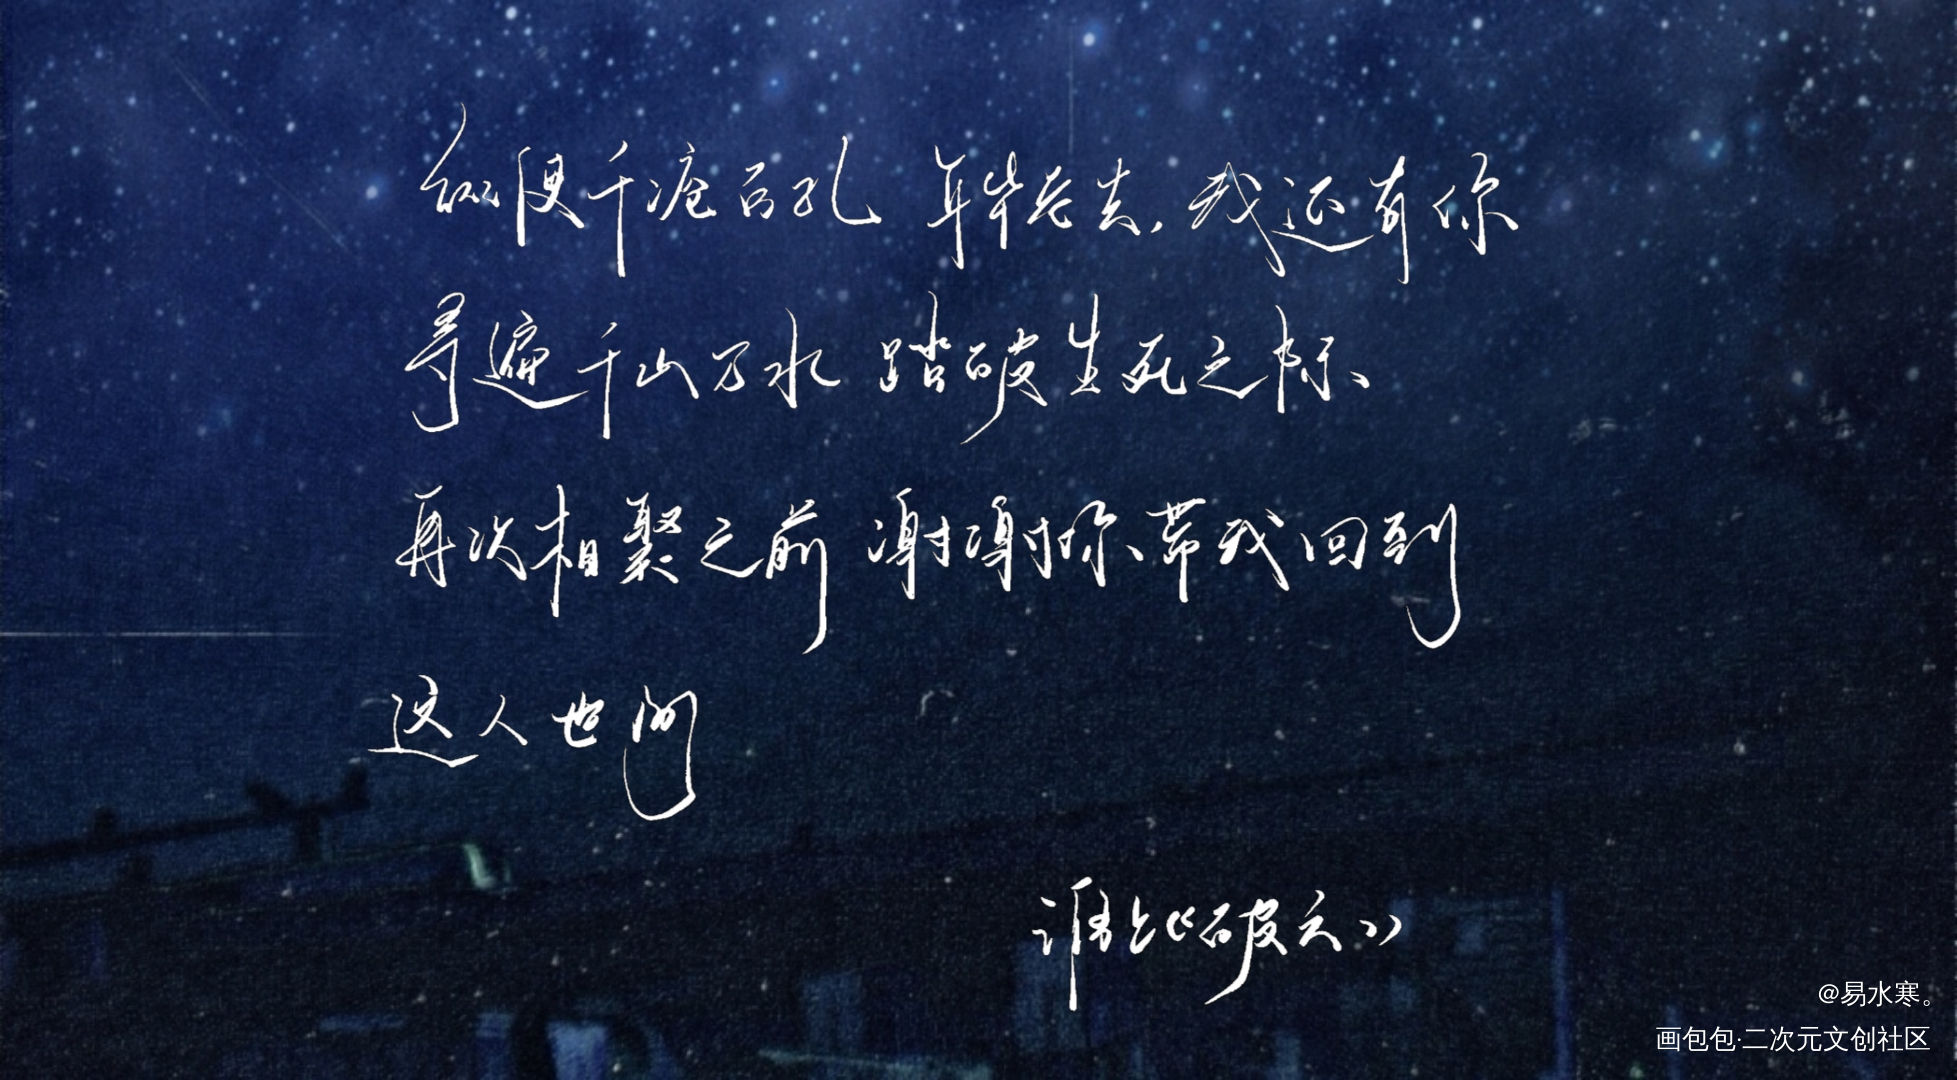 纵使千疮百孔 年华老去，我还有你
寻遍千山万水 踏破生死之际、
再次相聚之前 谢谢你带我回到
这人世间
淮上《破云》
@易水寒。
画包包·二次元文创社区